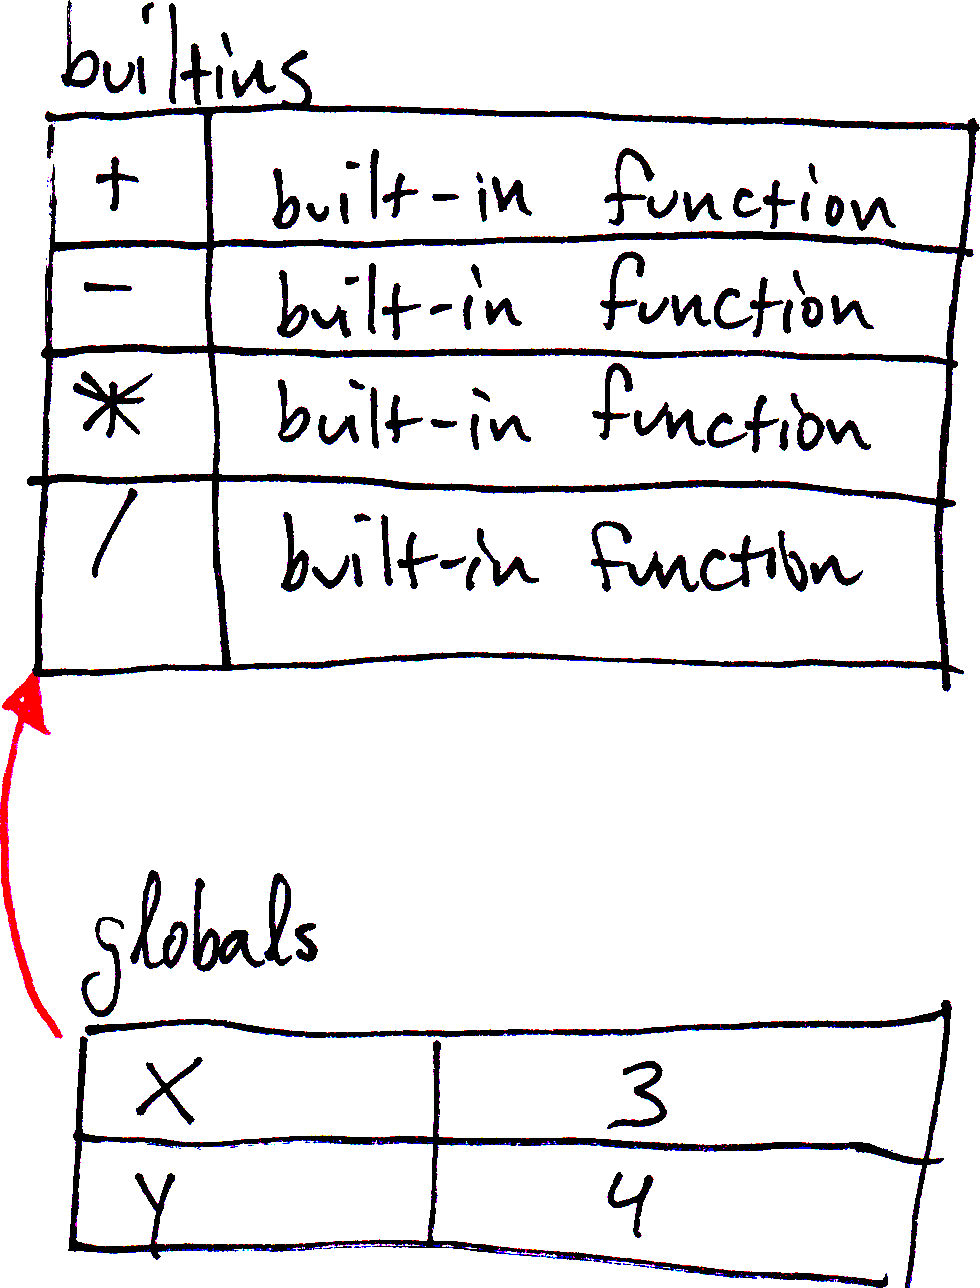 builtins
+ built-in function
- built-in function
* built-in function
/ built-in function
globals
x 3
y 4